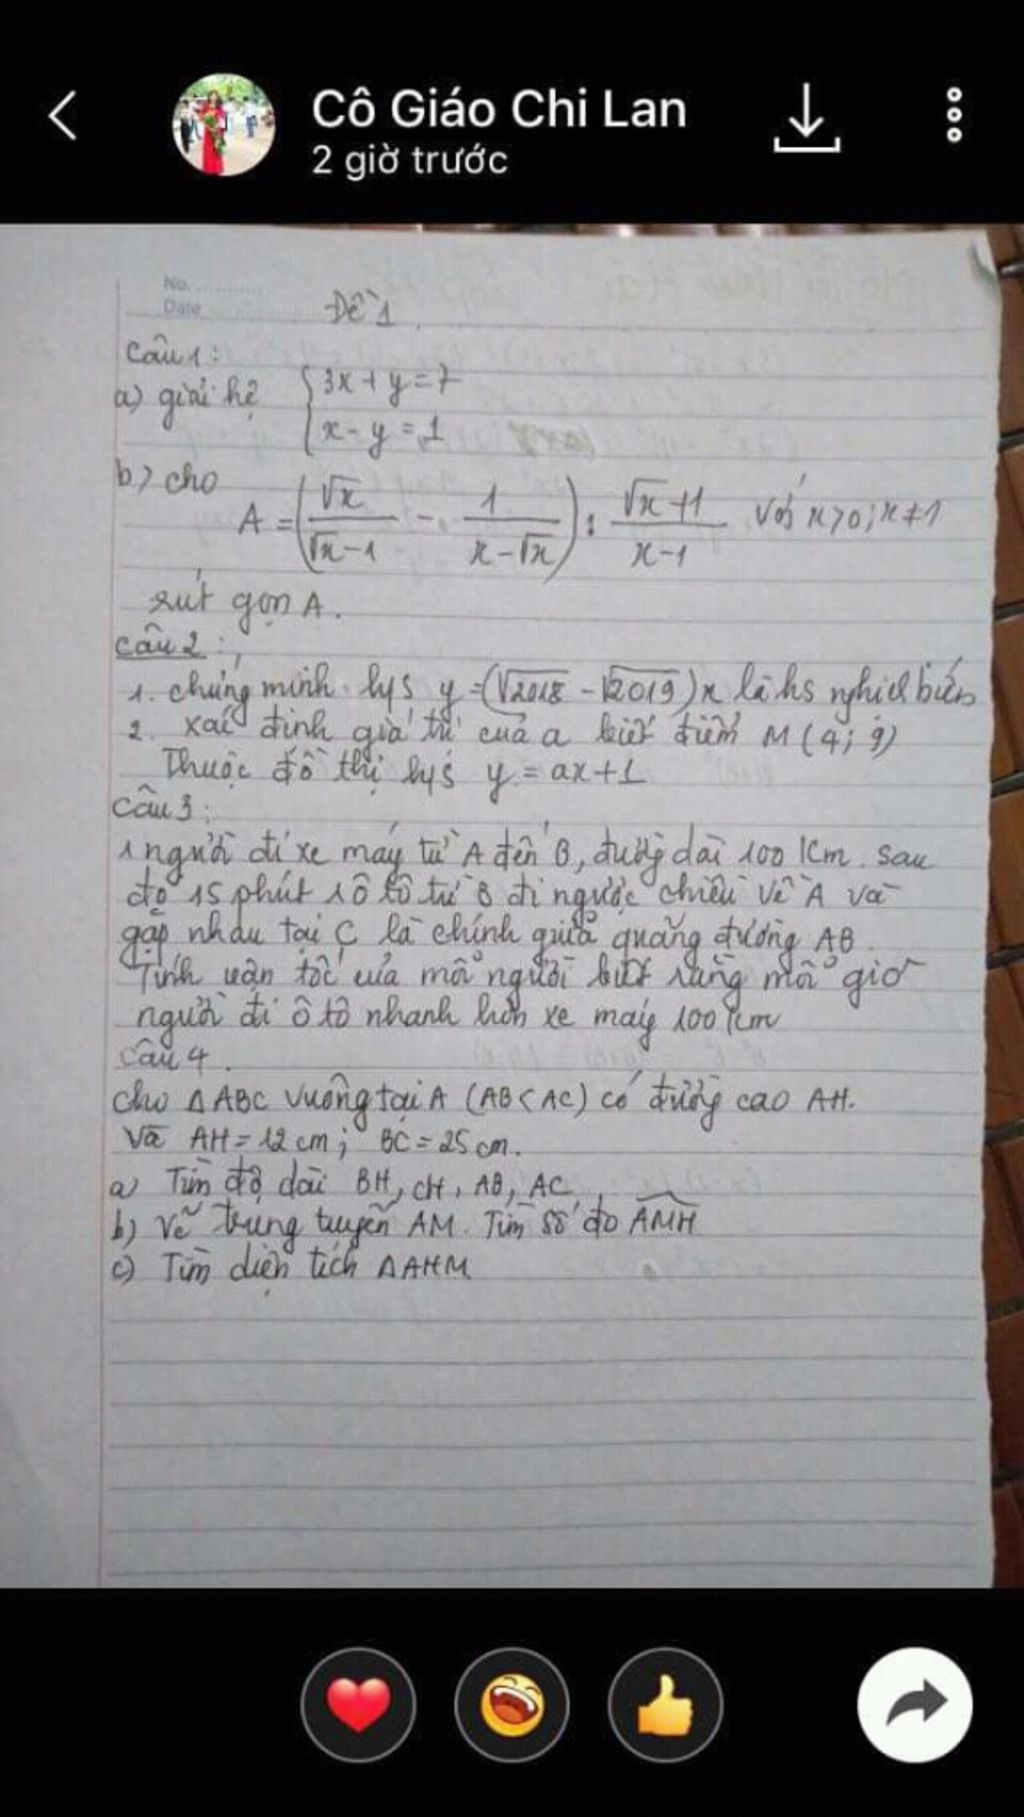 Cô Giáo Chi Lan
2 giờ trước
No. ............
Date
Đề 1
Câu 1:
a) giải hệ { 3x + y = 7
x - y = 1
b) cho
A = (√x / (√x - 1) - 1 / (x - √x)) : (√x + 1) / (x - 1) với x > 0; x ≠ 1
rút gọn A.
Câu 2:
1. chứng minh h/s y = (√2018 - √2019)x là hs nghịch biến
2. xác định giá trị của a biết điểm M (4; 9)
Thuộc đồ thị h/s y = ax + 1
Câu 3:
1 người đi xe máy từ A đến B, đường dài 100 Km. Sau
đó 15 phút 1 ô tô từ B đi ngược chiều về A và
gặp nhau tại C là chính giữa quãng đường AB.
Tính vận tốc của mỗi người biết rằng mỗi giờ
người đi ô tô nhanh hơn xe máy 100 Km
Câu 4.
Cho ΔABC vuông tại A (AB < AC) có đường cao AH.
Và AH = 12 cm; BC = 25 cm.
a) Tìm độ dài BH, CH, AB, AC
b) Vẽ trung tuyến AM. Tìm số đo AMH
c) Tìm diện tích ΔAHM